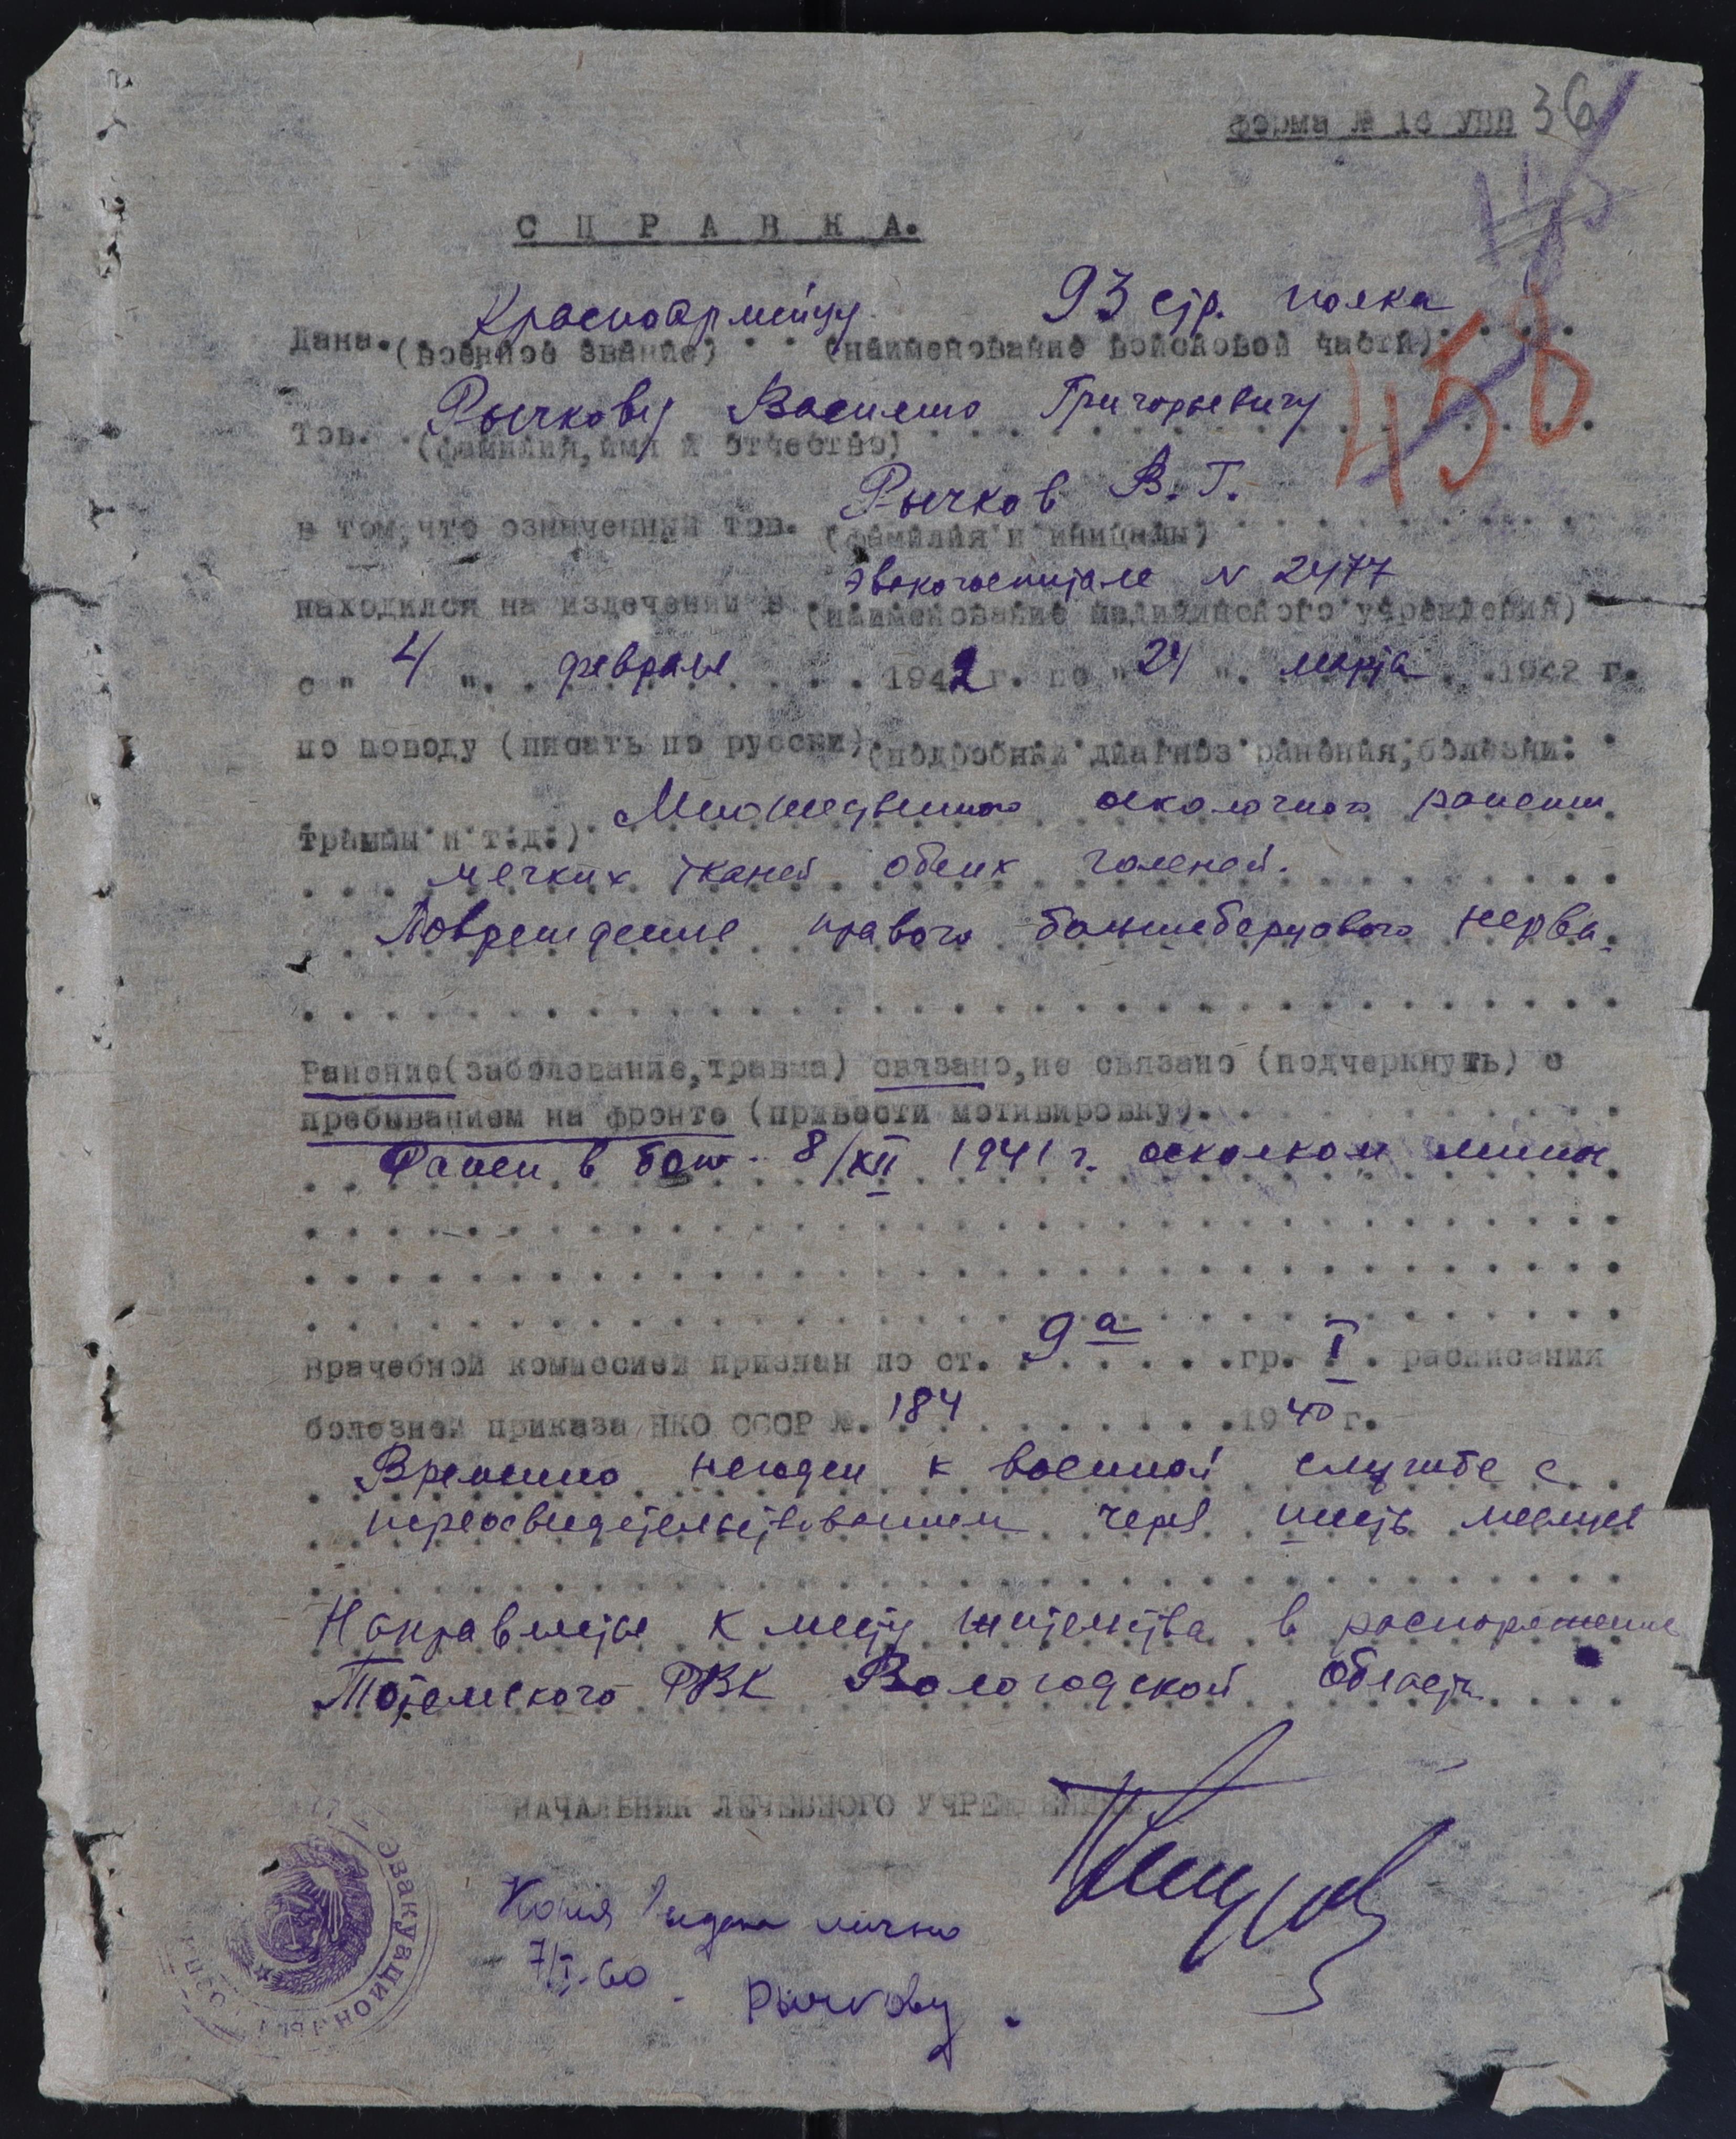 форма № 16 УВП 36
458
С П Р А В К А.
Дана. Красноармейцу 93 стр. полка
(военное звание) (наименование войсковой части)
Тов. Рычкову Василию Григорьевичу
(фамилия, имя и отчество)
в том, что означенный тов. Рычков В. Г.
(фамилия и инициалы)
находился на излечении в эвакогоспитале N 2477
(наименование медицинского учреждения)
с " 4 " февраля 1942 г. по " 24 " марта 1942 г.
по поводу (писать по русски) (подробный диагноз ранения, болезни.
травмы и т.д.) Множественного осколочного ранения
мягких тканей обеих голеней.
Повреждение правого большеберцового нерва.
Ранение (заболевание, травма) связано, не связано (подчеркнуть) с
пребыванием на фронте (привести мотивировку).
Ранен в бою 8/XII 1941 г. осколком мины
врачебной комиссией признан по ст. 9а гр. I расписания
болезней приказа НКО СССР №. 184 1940 г.
Временно негоден к военной службе с
переосвидетельствованием через шесть месяцев
Направляется к месту жительства в распоряжение
Тотемского РВК Вологодской области
НАЧАЛЬНИК ЛЕЧЕБНОГО УЧРЕЖДЕНИЯ
Копия выдана лично
7/I-60
Рычкову.
Эвакуационный